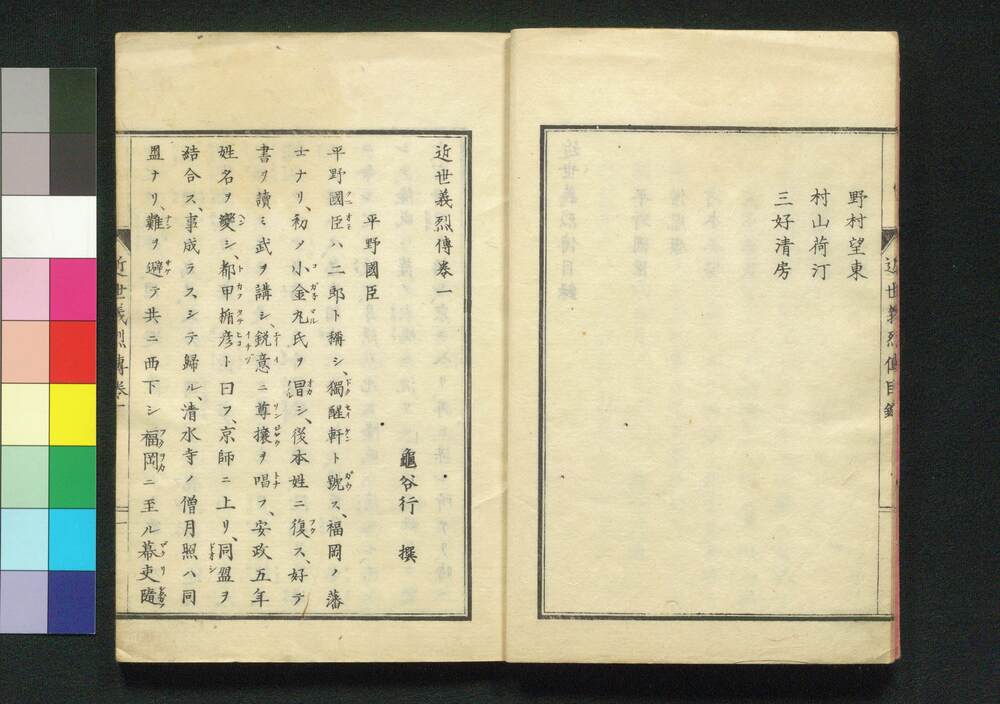 野村望東
村山荷汀
三好清房
近世義烈傳目錄
近世義烈傳卷一
龜谷行 撰
平野國臣
平野國臣ハ二郎ト稱シ、獨醒軒ト號ス、福岡ノ藩
士ナリ、初メ小金丸氏ヲ冒シ、後本姓ニ復ス、好テ
書ヲ讀ミ武ヲ講シ、鋭意ニ尊攘ヲ唱フ、安政五年
姓名ヲ變シ、都甲楯彦ト曰フ、京師ニ上リ、同盟ヲ
結合ス、事成ラスシテ歸ル、清水寺ノ僧月照ハ同
盟ナリ、難ヲ避テ共ニ西下シ福岡ニ至ル幕吏隨
近世義烈傳卷一
一